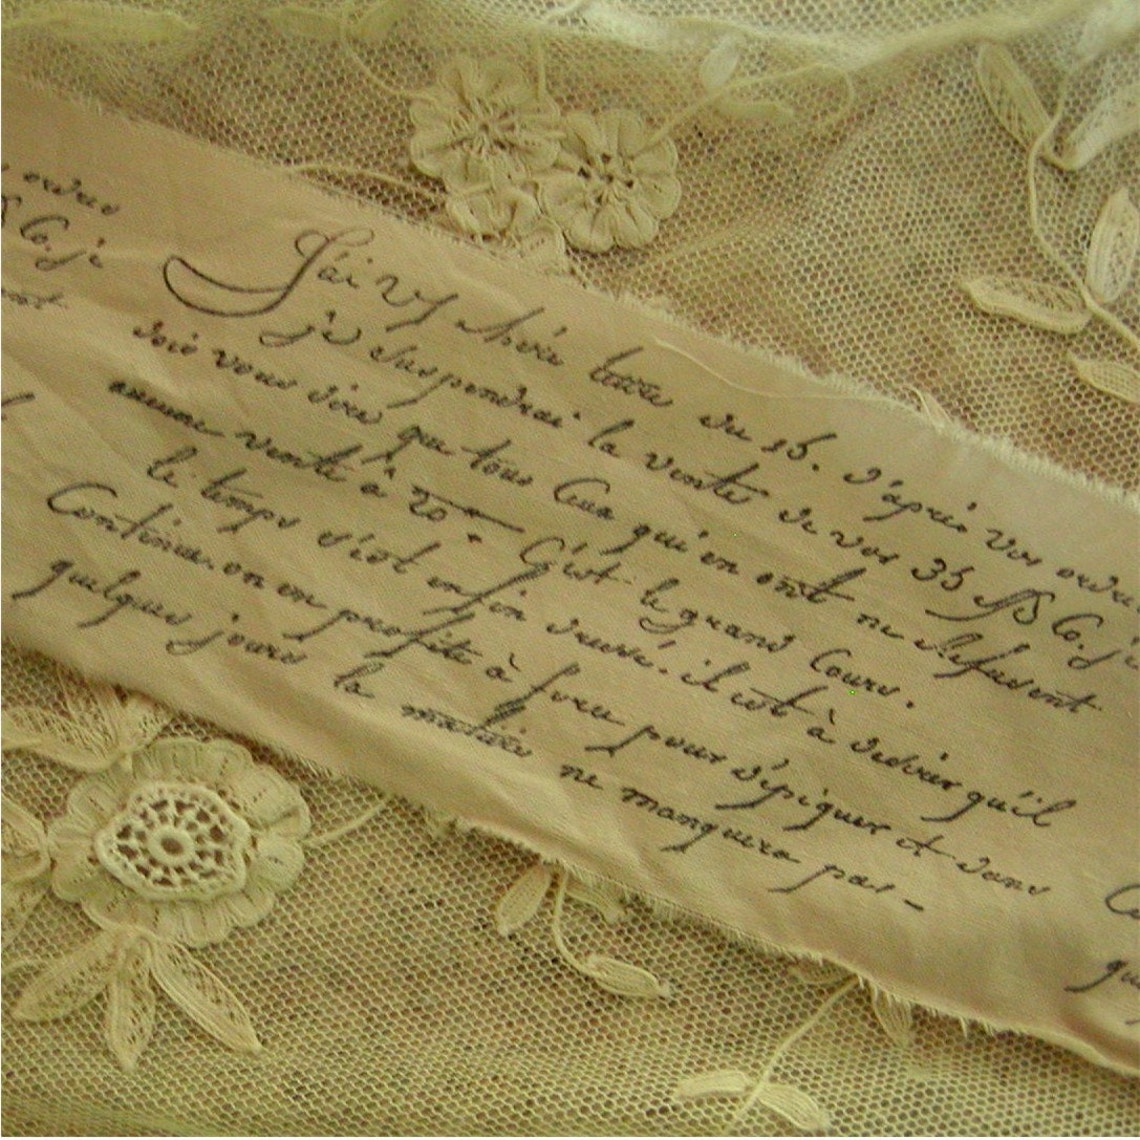 ordres
Co. je
J'ai vs chère du 15. d'après vos ordres
je suspendrai la vente de vos 35 Co. je
dois vous dire que tous Ceux qui en ont ne Refusent
aucune vente à 20 C'est le grand Cours.
le temps s'est enfin dressé. il est à désirer qu'il
Continue. on en profite à force pour dépiquer et dans
quelques jours la matière ne manquera pas –